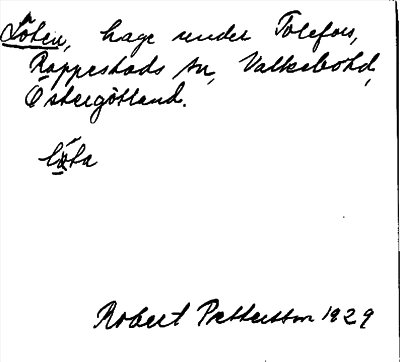 Löten, hage under Tolefors,
Rappestads sn, Valkebohd,
Östergötland.
löta
Robert Pettersson 1929